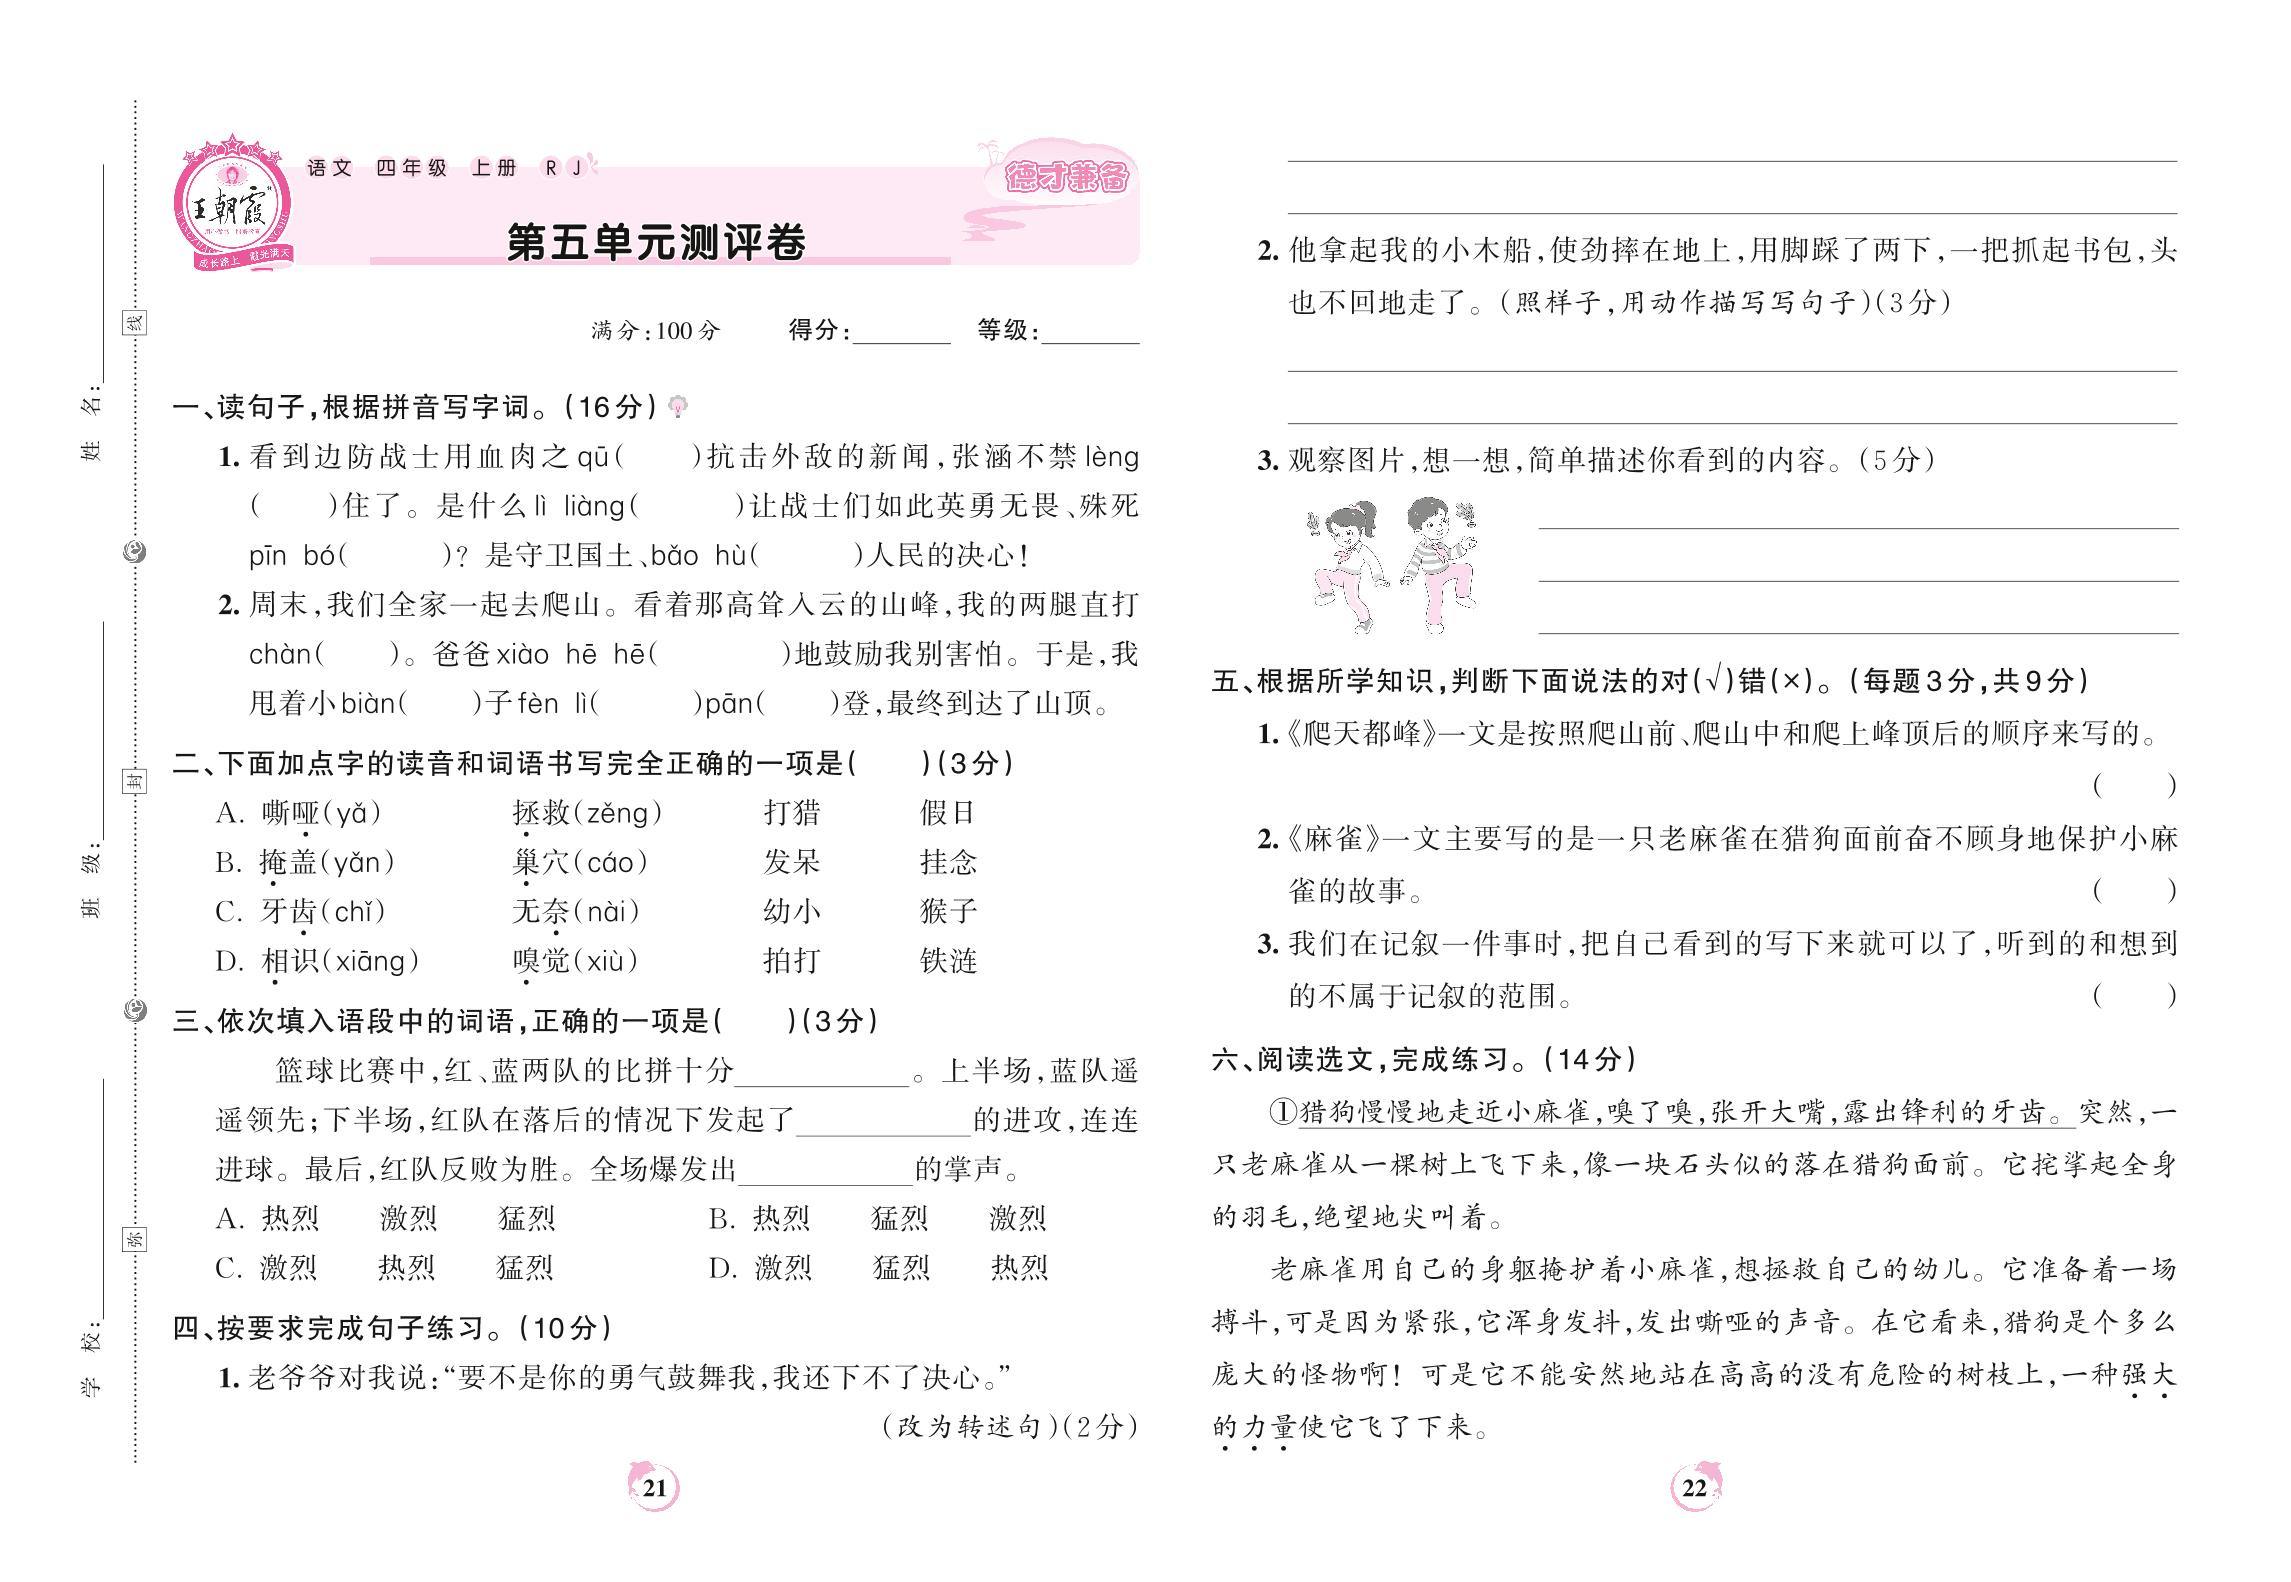 语文 四年级 上册 RJ
德才兼备
王朝霞
成长路上 霞光满天
第五单元测评卷
满分:100分 得分: 等级:
姓 名:
班 级:
学 校:
线
封
弥
一、读句子,根据拼音写字词。(16分)
1. 看到边防战士用血肉之qū( )抗击外敌的新闻,张涵不禁lèng
( )住了。是什么lì liàng( )让战士们如此英勇无畏、殊死
pīn bó( )? 是守卫国土、bǎo hù( )人民的决心!
2. 周末,我们全家一起去爬山。看着那高耸入云的山峰,我的两腿直打
chàn( )。爸爸xiào hē hē( )地鼓励我别害怕。于是,我
甩着小biàn( )子fèn lì( )pān( )登,最终到达了山顶。
二、下面加点字的读音和词语书写完全正确的一项是( )(3分)
A. 嘶哑(yǎ) 拯救(zěng) 打猎 假日
B. 掩盖(yǎn) 巢穴(cáo) 发呆 挂念
C. 牙齿(chǐ) 无奈(nài) 幼小 猴子
D. 相识(xiāng) 嗅觉(xiù) 拍打 铁涟
三、依次填入语段中的词语,正确的一项是( )(3分)
篮球比赛中,红、蓝两队的比拼十分 。上半场,蓝队遥
遥领先;下半场,红队在落后的情况下发起了 的进攻,连连
进球。最后,红队反败为胜。全场爆发出 的掌声。
A. 热烈 激烈 猛烈 B. 热烈 猛烈 激烈
C. 激烈 热烈 猛烈 D. 激烈 猛烈 热烈
四、按要求完成句子练习。(10分)
1. 老爷爷对我说:“要不是你的勇气鼓舞我,我还下不了决心。”
(改为转述句)(2分)
21
2. 他拿起我的小木船,使劲摔在地上,用脚踩了两下,一把抓起书包,头
也不回地走了。(照样子,用动作描写写句子)(3分)
3. 观察图片,想一想,简单描述你看到的内容。(5分)
五、根据所学知识,判断下面说法的对(√)错(×)。(每题3分,共9分)
1.《爬天都峰》一文是按照爬山前、爬山中和爬上峰顶后的顺序来写的。
( )
2.《麻雀》一文主要写的是一只老麻雀在猎狗面前奋不顾身地保护小麻
雀的故事。 ( )
3. 我们在记叙一件事时,把自己看到的写下来就可以了,听到的和想到
的不属于记叙的范围。 ( )
六、阅读选文,完成练习。(14分)
①猎狗慢慢地走近小麻雀,嗅了嗅,张开大嘴,露出锋利的牙齿。突然,一
只老麻雀从一棵树上飞下来,像一块石头似的落在猎狗面前。它挓挲起全身
的羽毛,绝望地尖叫着。
老麻雀用自己的身躯掩护着小麻雀,想拯救自己的幼儿。它准备着一场
搏斗,可是因为紧张,它浑身发抖,发出嘶哑的声音。在它看来,猎狗是个多么
庞大的怪物啊! 可是它不能安然地站在高高的没有危险的树枝上,一种强大
的力量使它飞了下来。
22